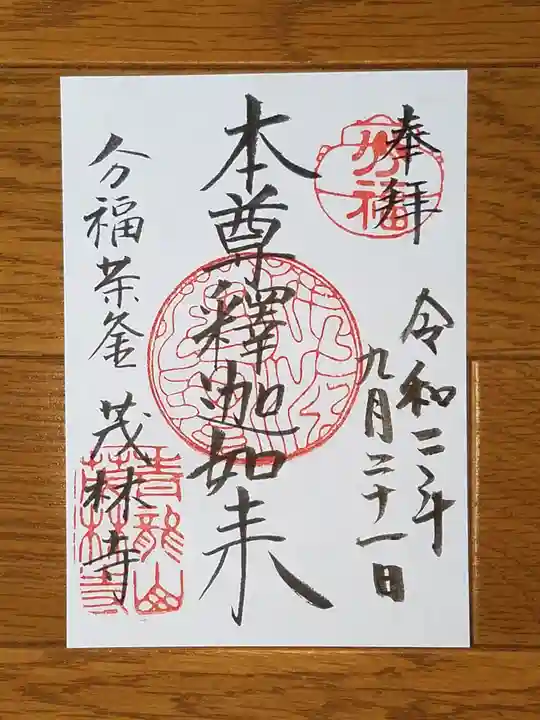 奉拝
分福
令和二年
九月二十一日
本尊釋迦如来
分福茶釜 茂林寺
青龍山
茂林寺